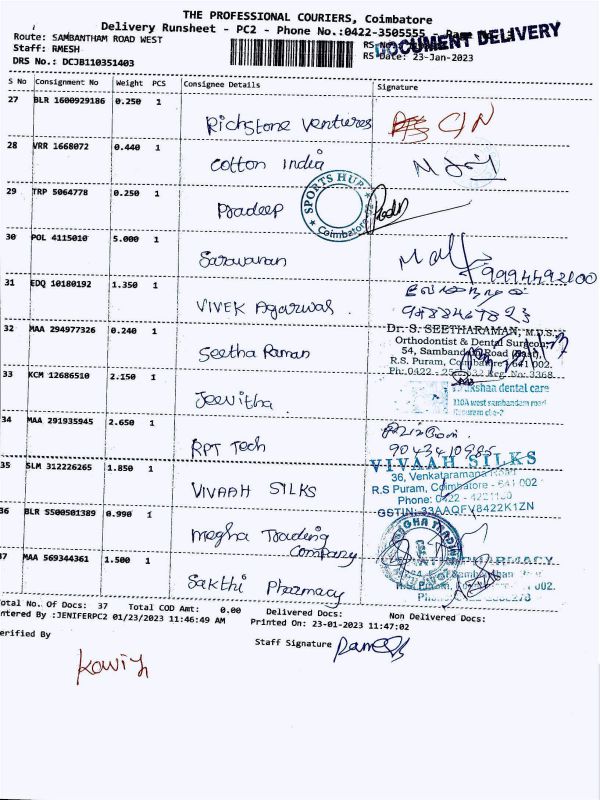 THE PROFESSIONAL COURIERS, Coimbatore
Delivery Runsheet - PC2 - Phone No.:0422-3505555
DOCUMENT DELIVERY
Route: SAMBANTHAM ROAD WEST
Staff: RMESH
RS Date: 23-Jan-2023
DRS No.: DCJB110351403
S No Consignment No Weight PCS Consignee Details Signature
27 BLR 1600929186 0.250 1 Richstone Ventures
28 VRR 1668072 0.440 1 Cotton India
29 TRP 5064778 0.250 1 Pradeep
SPORTS HUB
Coimbatore
30 POL 4115010 5.000 1 Saravanan
9994492100
31 EDQ 10180192 1.350 1 VIVEK Agarwal
32 MAA 294977326 0.240 1 Seetha Raman
Dr. S. SEETHARAMAN, M.D.S.
Orthodontist & Dental Surgeon
R.S. Puram, Coimbatore - 641 002.
33 KCM 12686510 2.150 1 Jeevitha
dental care
110A west sambandam road
34 MAA 291935945 2.650 1 RPT Tech
9043410985
35 SLM 312226265 1.850 1 VIVAAH SILKS
VIVAAH SILKS
36, Venkataramana Road
R.S Puram, Coimbatore - 641 002
GSTIN: 33AAQFV8422K1ZN
36 BLR S500501389 0.990 1 Megha Trading Company
37 MAA 569344361 1.500 1 Sakthi Pharmacy
Total No. Of Docs: 37 Total COD Amt: 0.00 Delivered Docs: Non Delivered Docs:
Entered By :JENIFERPC2 01/23/2023 11:46:49 AM Printed On: 23-01-2023 11:47:02
Verified By Staff Signature